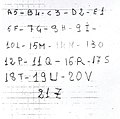 A5-B4-C3-D2-E1
6F-7G-9H-9I-
10L-15M-11N-13O
12P-11Q-16R-17S
18T-19U-20V
21Z